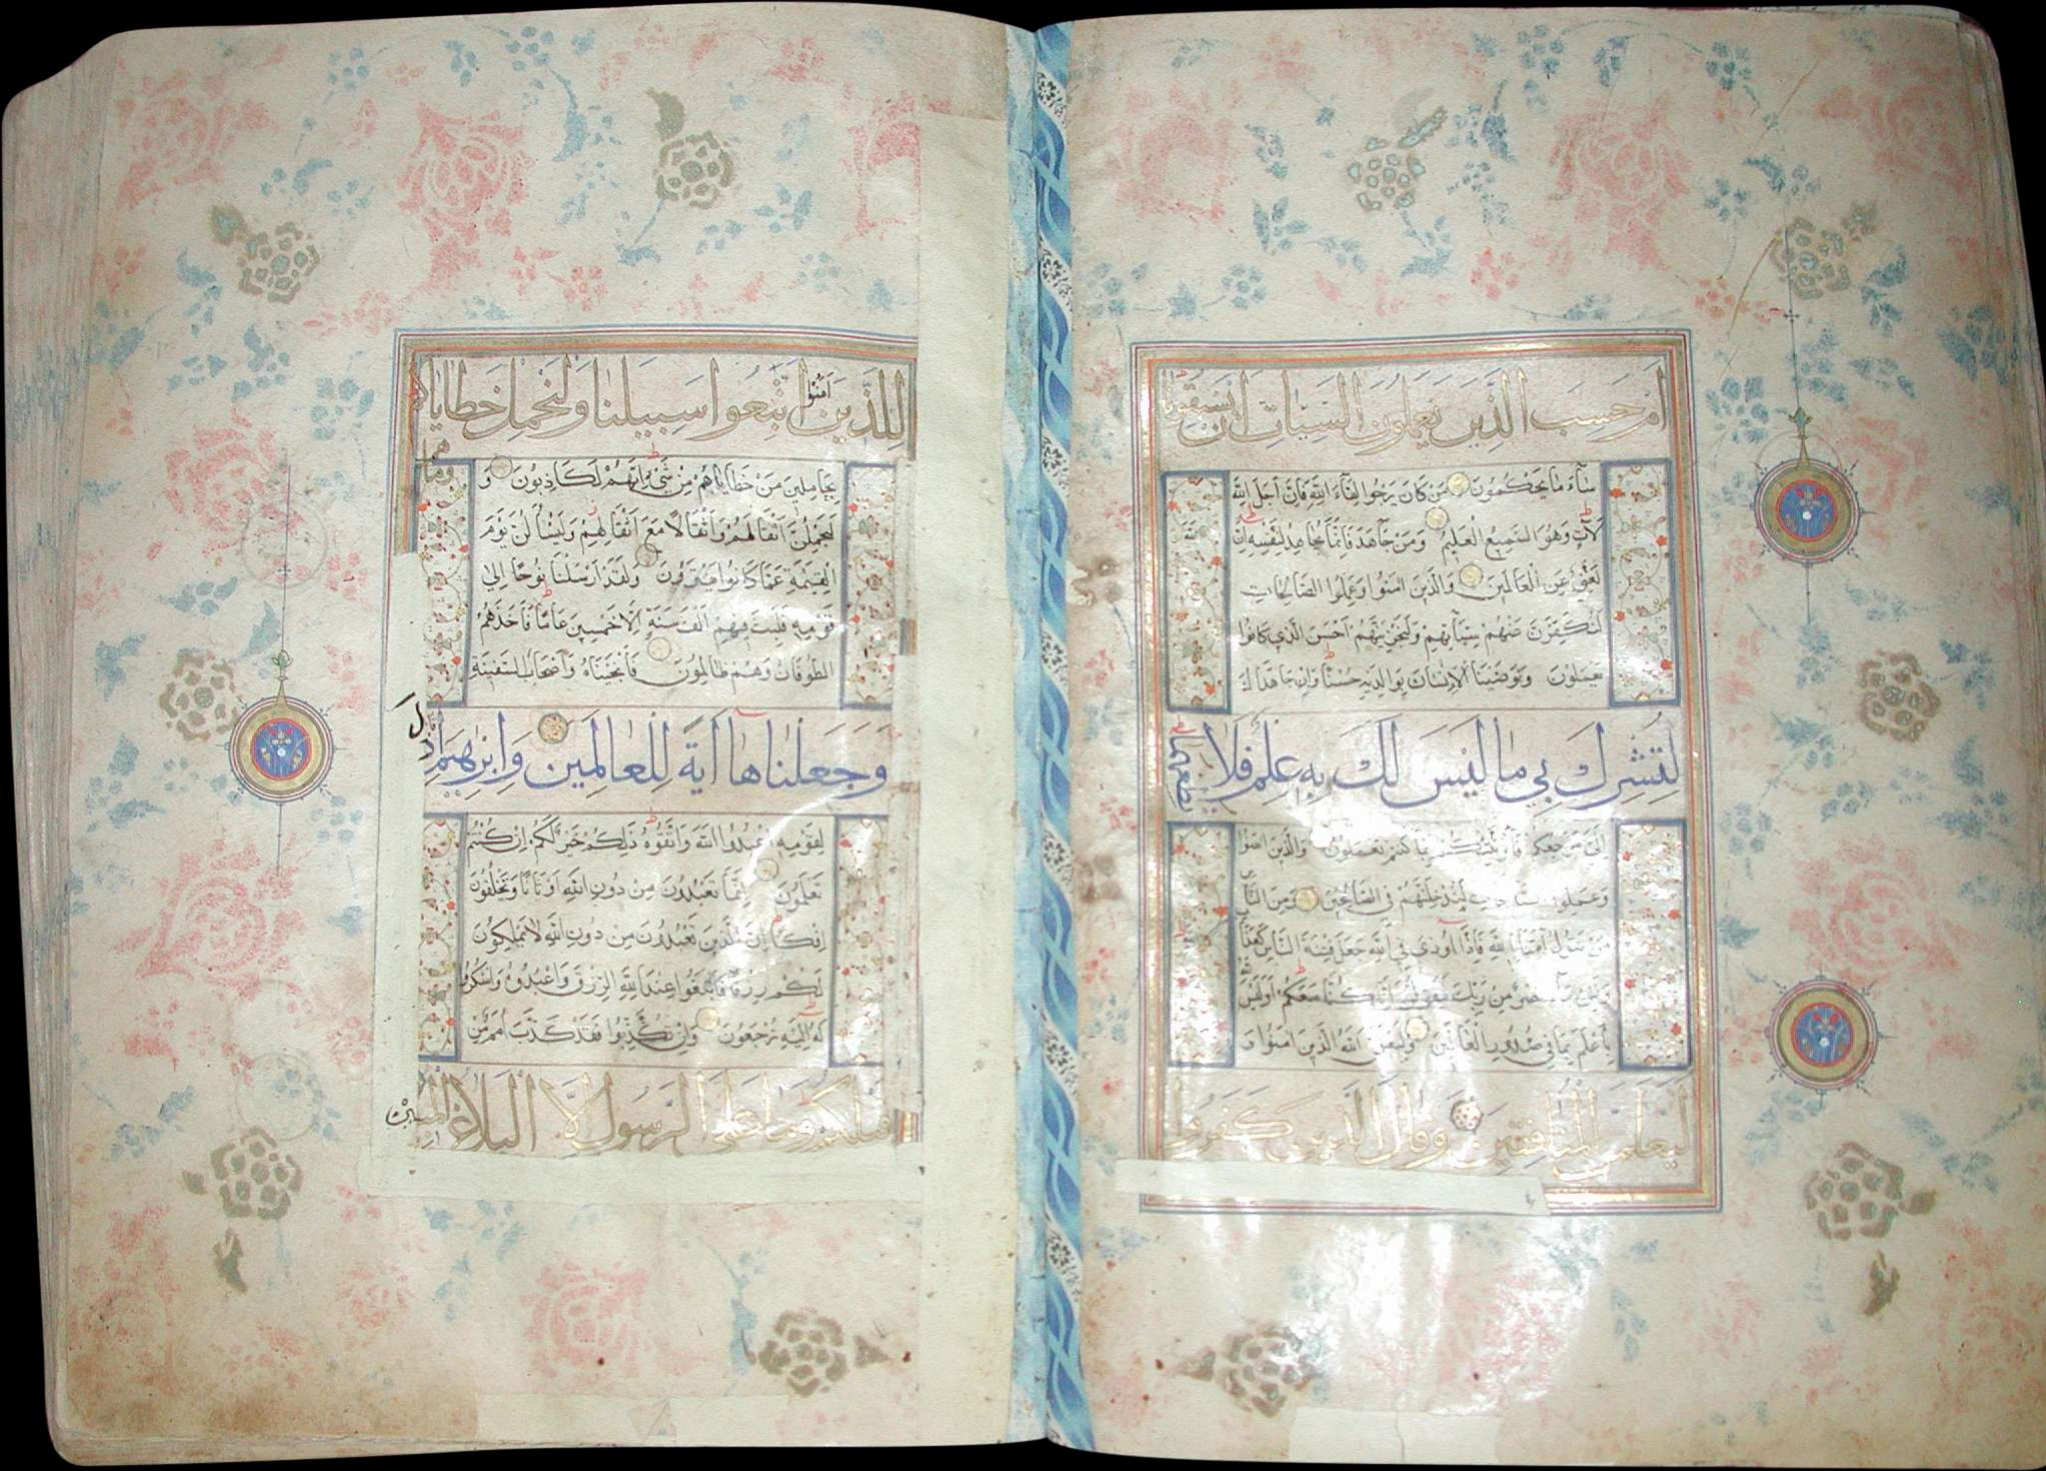 أم حسب الذين يعملون السيئات أن يسبقونا
ساء ما يحكمون من كان يرجوا لقاء الله فإن أجل الله
لآت وهو السميع العليم ومن جاهد فإنما يجاهد لنفسه إن الله
لغني عن العالمين والذين امنوا وعملوا الصالحات
لنكفرن عنهم سيئاتهم ولنجزينهم أحسن الذي كانوا
يعملون ووصينا الإنسان بوالديه حسنا وإن جاهداك
لتشرك بي ما ليس لك به علم فلا تطعهما
إلي مرجعكم فأنبئكم بما كنتم تعملون والذين امنوا
وعملوا الصالحات لندخلنهم في الصالحين ومن الناس
من يقول آمنا بالله فإذا أوذي في الله جعل فتنة الناس كعذاب الله
ولئن جاء نصر من ربك ليقولن إنا كنا معكم أوليس الله
بأعلم بما في صدور العالمين وليعلمن الله الذين امنوا و
ليعلمن المنافقين وقال الذين كفروا
للذين امنوا اتبعوا سبيلنا ولنحمل خطاياكم وما هم
بحاملين من خطاياهم من شيء إنهم لكاذبون و
ليحملن أثقالهم وأثقالا مع أثقالهم وليسئلن يوم
القيمة عما كانوا يفترون ولقد أرسلنا نوحا إلى
قومه فلبث فيهم ألف سنة إلا خمسين عاما فأخذهم
الطوفان وهم ظالمون فأنجيناه وأصحاب السفينة
وجعلناها آية للعالمين وإبرهيم إذ قال
لقومه اعبدوا الله واتقوه ذلكم خير لكم إن كنتم
تعلمون إنما تعبدون من دون الله أوثانا وتخلقون
إفكا إن الذين تعبدون من دون الله لا يملكون
لكم رزقا فابتغوا عند الله الرزق واعبدوه واشكروا
له إليه ترجعون وإن تكذبوا فقد كذب أمم من
قبلكم وما على الرسول إلا البلاغ المبين